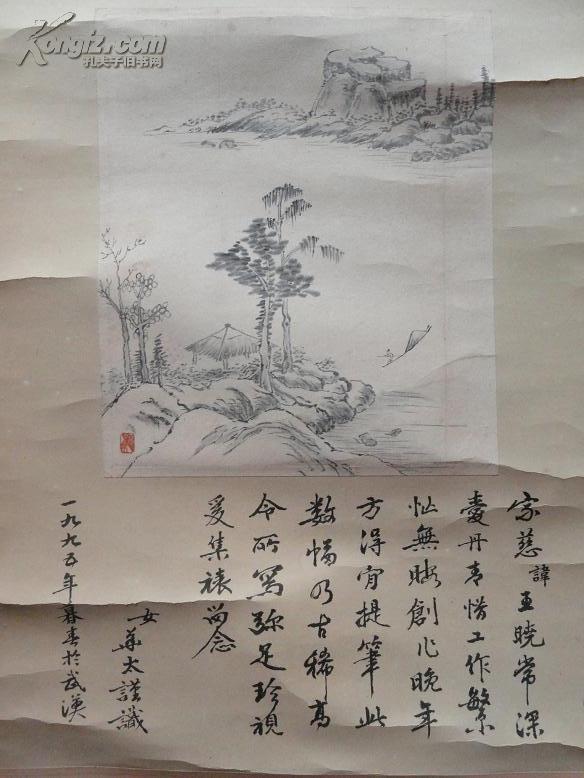 Kongfz.com
孔夫子旧书网
家慈諱王曉常深
愛丹青惜工作繁
忙無暇創作晚年
方得宵提筆此
数幅乃古稀高
令所寫弥足珍視
爰集裱留念
女華太謹識
一九九五年暮春於武漢